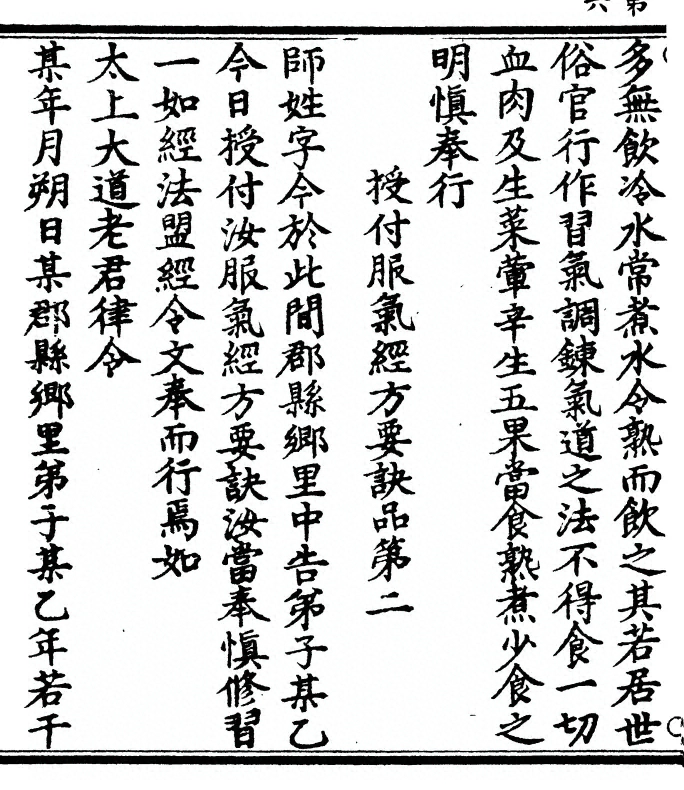 第六
多無飲冷水常煮水令熟而飲之其若居世
俗官行作習氣調鍊氣道之法不得食一切
血肉及生菜葷辛生五果當食熟煮少食之
明慎奉行
授付服氣經方要訣品第二
師姓字今於此間郡縣鄉里中告弟子某乙
今日授付汝服氣經方要訣汝當奉慎修習
一如經法盟經令文奉而行焉如
太上大道老君律令
某年月朔日某郡縣鄉里弟子某乙年若干